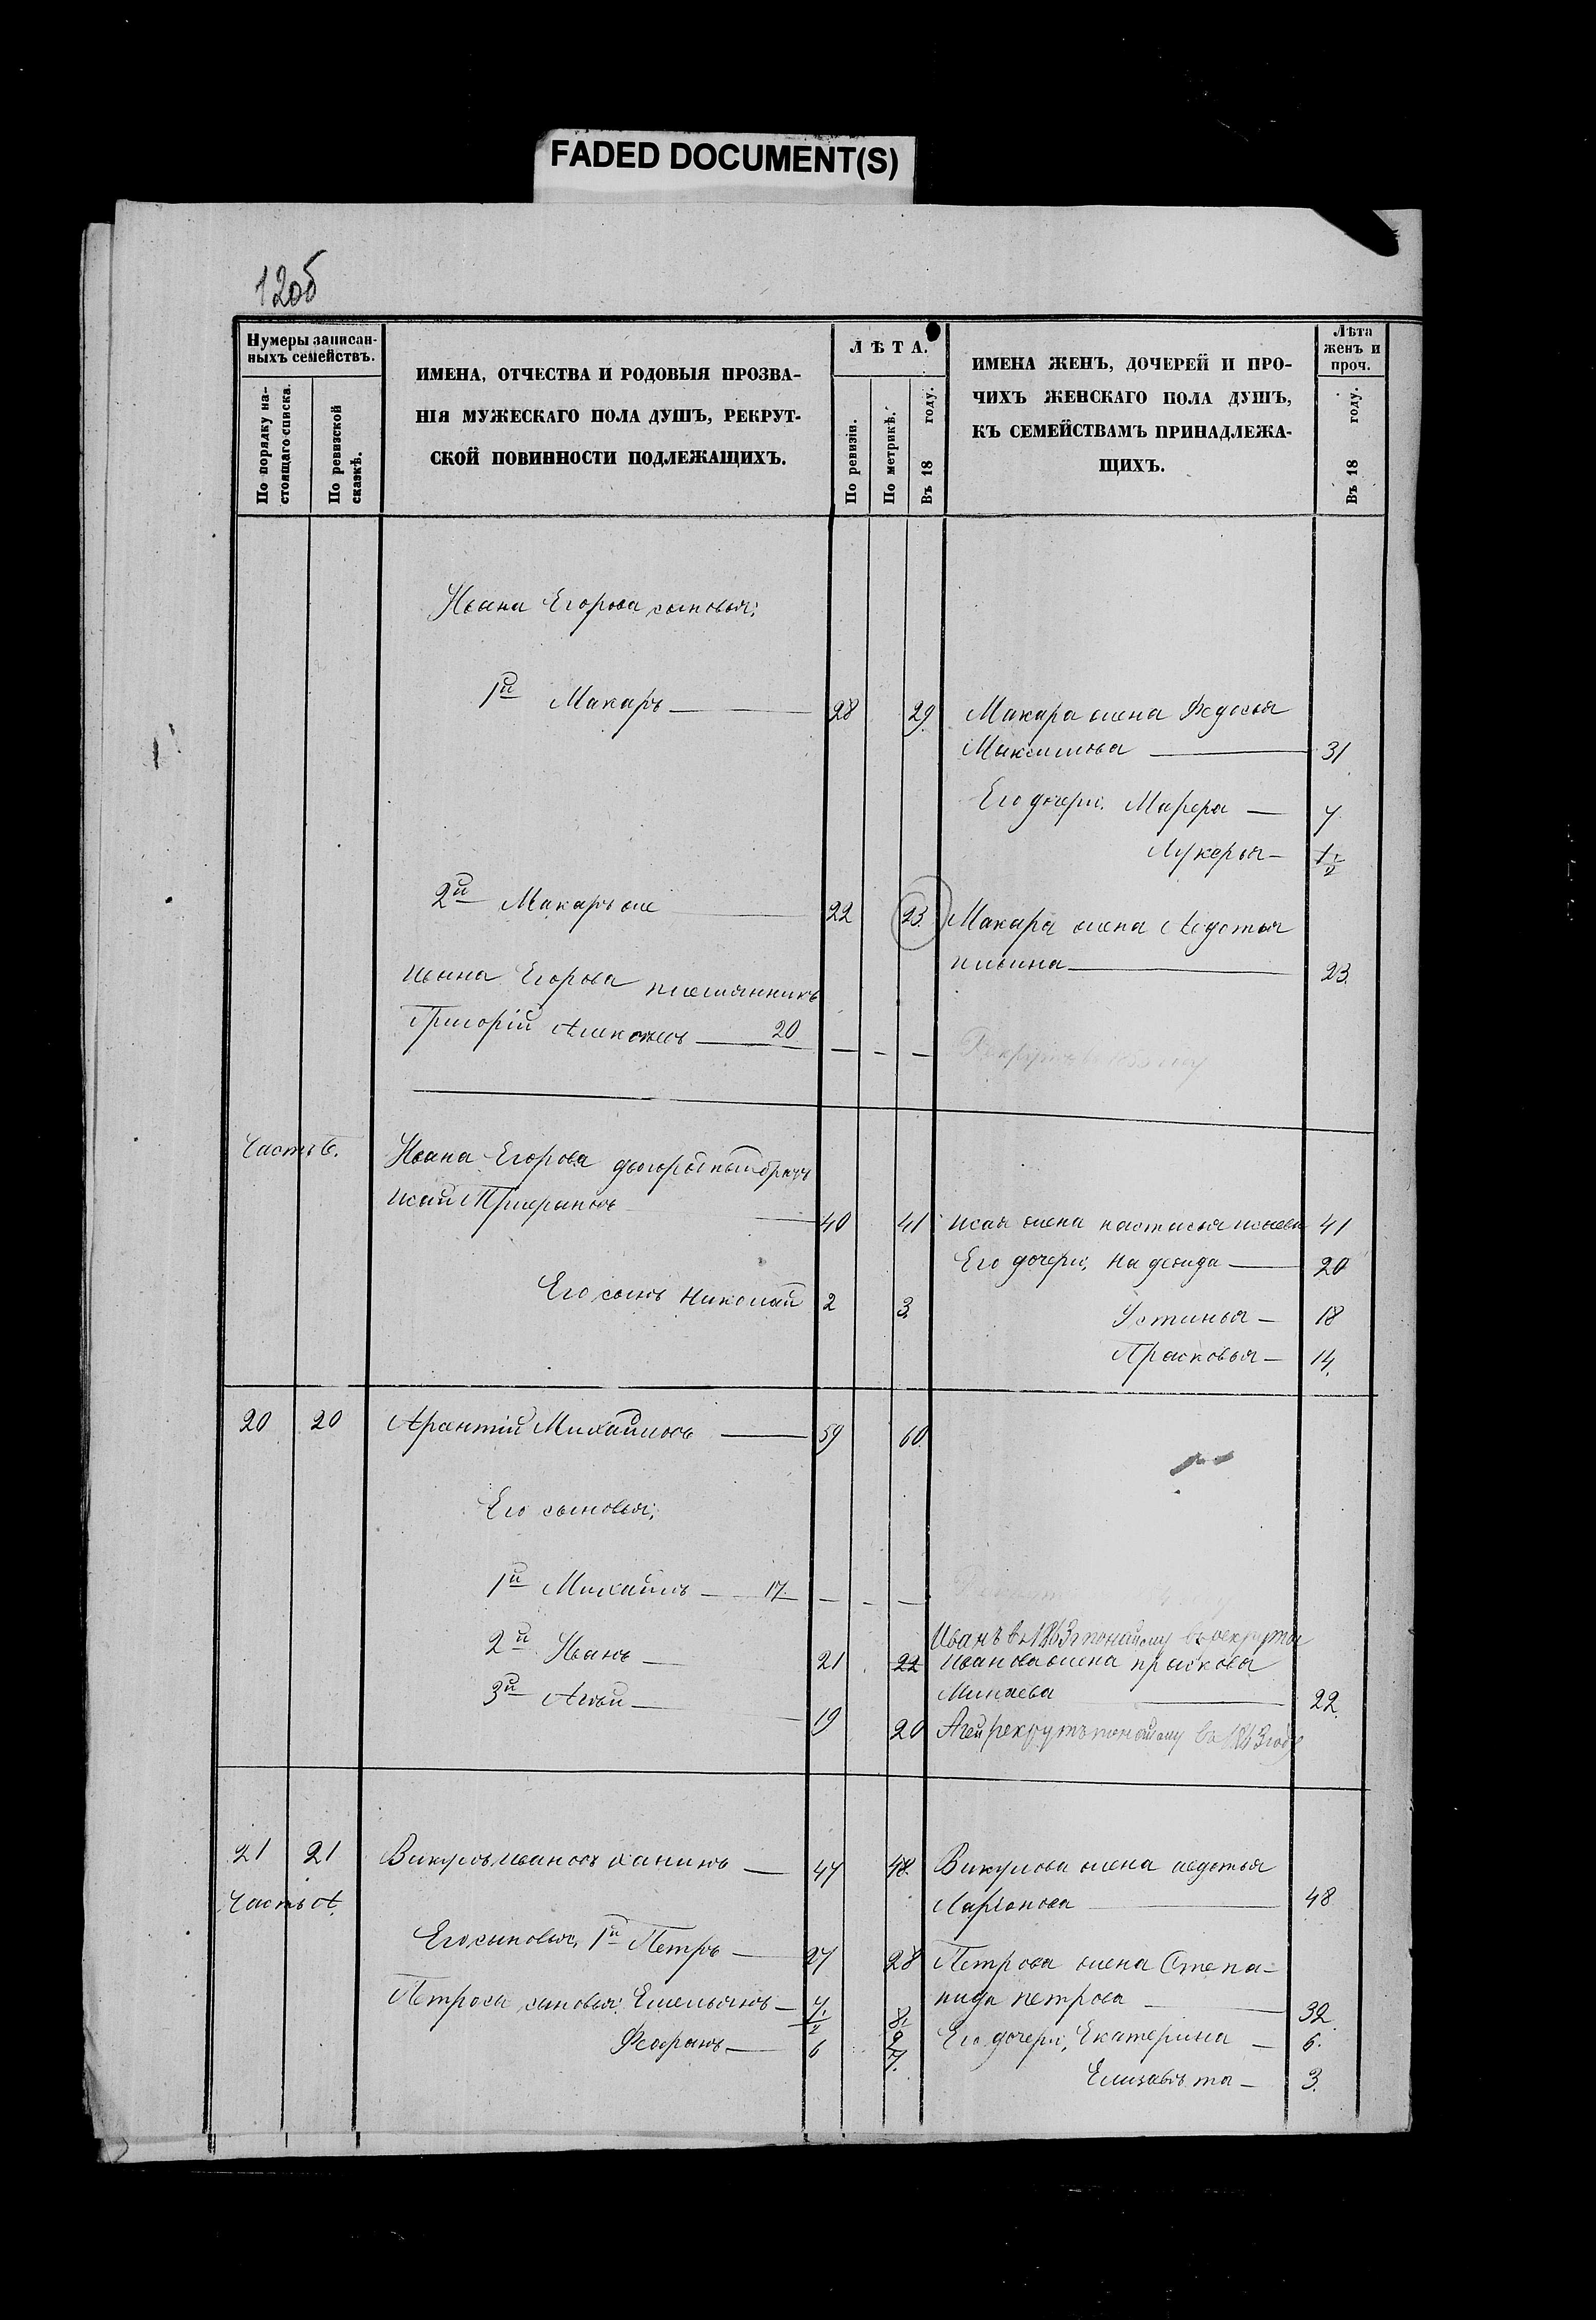 FADED DOCUMENT(S)
12об
Нумеры записан-
ныхъ семействъ.
По порядку на-
стоящаго списка.
По ревизской
сказкѣ.
ИМЕНА, ОТЧЕСТВА И РОДОВЫЯ ПРОЗВА-
НІЯ МУЖЕСКАГО ПОЛА ДУШЪ, РЕКРУТ-
СКОЙ ПОВИННОСТИ ПОДЛЕЖАЩИХЪ.
ЛѢТА.
По ревизіи.
По метрикѣ.
Въ 18 году.
ИМЕНА ЖЕНЪ, ДОЧЕРЕЙ И ПРО-
ЧИХЪ ЖЕНСКАГО ПОЛА ДУШЪ,
КЪ СЕМЕЙСТВАМЪ ПРИНАДЛЕЖА-
ЩИХЪ.
Лѣта
женъ и
проч.
Въ 18 году.
Ивана Егорова сыновья:
1й Макаръ — 28 29. Макара жена Федосья
Максимова — 31
Его дочери: Марѳра — 7
Лукерья —
2й Макаръ же 22 23. Макара жена Авдотья
ильина — 23.
ивана Егорова племянникъ
Григорій — 20 — — —
Часть Б. Ивана Егорова двоюродный братъ
исай — 40 41 исая жена настасья 41
Его дочери: надежда — 20
Его сынъ николай 2 3. Устинья — 18
Прасковья — 14.
20 20 Арантій Михайловъ — 59 60.
Его сыновья:
1й Михайлъ — 17. — — —
2й Иванъ — 21 22 Иванъ в 1863г по найому в рекруты
иванова жена прасковa
Минаева — 22.
3й Агѣй — 19 20 Агей рекрутъ по найому в году
21 21 Викулъ ивановъ — 47 48. Викулова жена авдотья
Часть А. Ларіонова — 48
Его сыновья: 1й Петръ — 27 28 Петрова жена Степа-
нида петрова — 32.
Петрова сыновья: Емельянъ — 7½ 8½
Его дочери: Екатерина — 6.
— 6 7. Елизавѣта — 3.